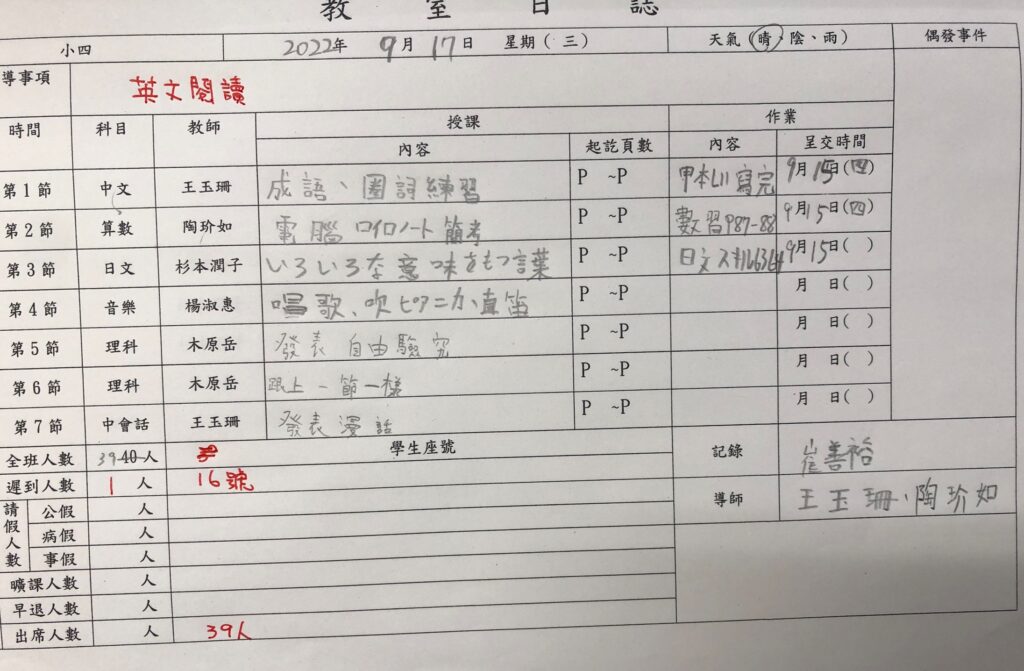 教室日誌
小四 2022年 9月17日 星期(三) 天氣(晴、陰、雨) 偶發事件
導事項 英文閱讀
時間 科目 教師 授課 作業
內容 起訖頁數 內容 呈交時間
第1節 中文 王玉珊 成語、圈詞練習 P ~P 甲本L11寫完 9月15日(四)
第2節 算數 陶玠如 電腦 ロイロノート 簡考 P ~P 數習P87-88 9月15日(四)
第3節 日文 杉本潤子 いろいろな意味をもつ言葉 P ~P 日文スキル63,64 9月15日( )
第4節 音樂 楊淑惠 唱歌、吹ピアニカ直笛 P ~P 月 日( )
第5節 理科 木原岳 發表 自由驗究 P ~P 月 日( )
第6節 理科 木原岳 跟上一節一樣 P ~P 月 日( )
第7節 中會話 王玉珊 發表漫話 P ~P 月 日( )
全班人數 39 40人 學生座號 記錄 崔善裕
遲到人數 1人 16號 導師 王玉珊、陶玠如
請假人數 公假 人
病假 人
事假 人
曠課人數 人
早退人數 人
出席人數 人 39人